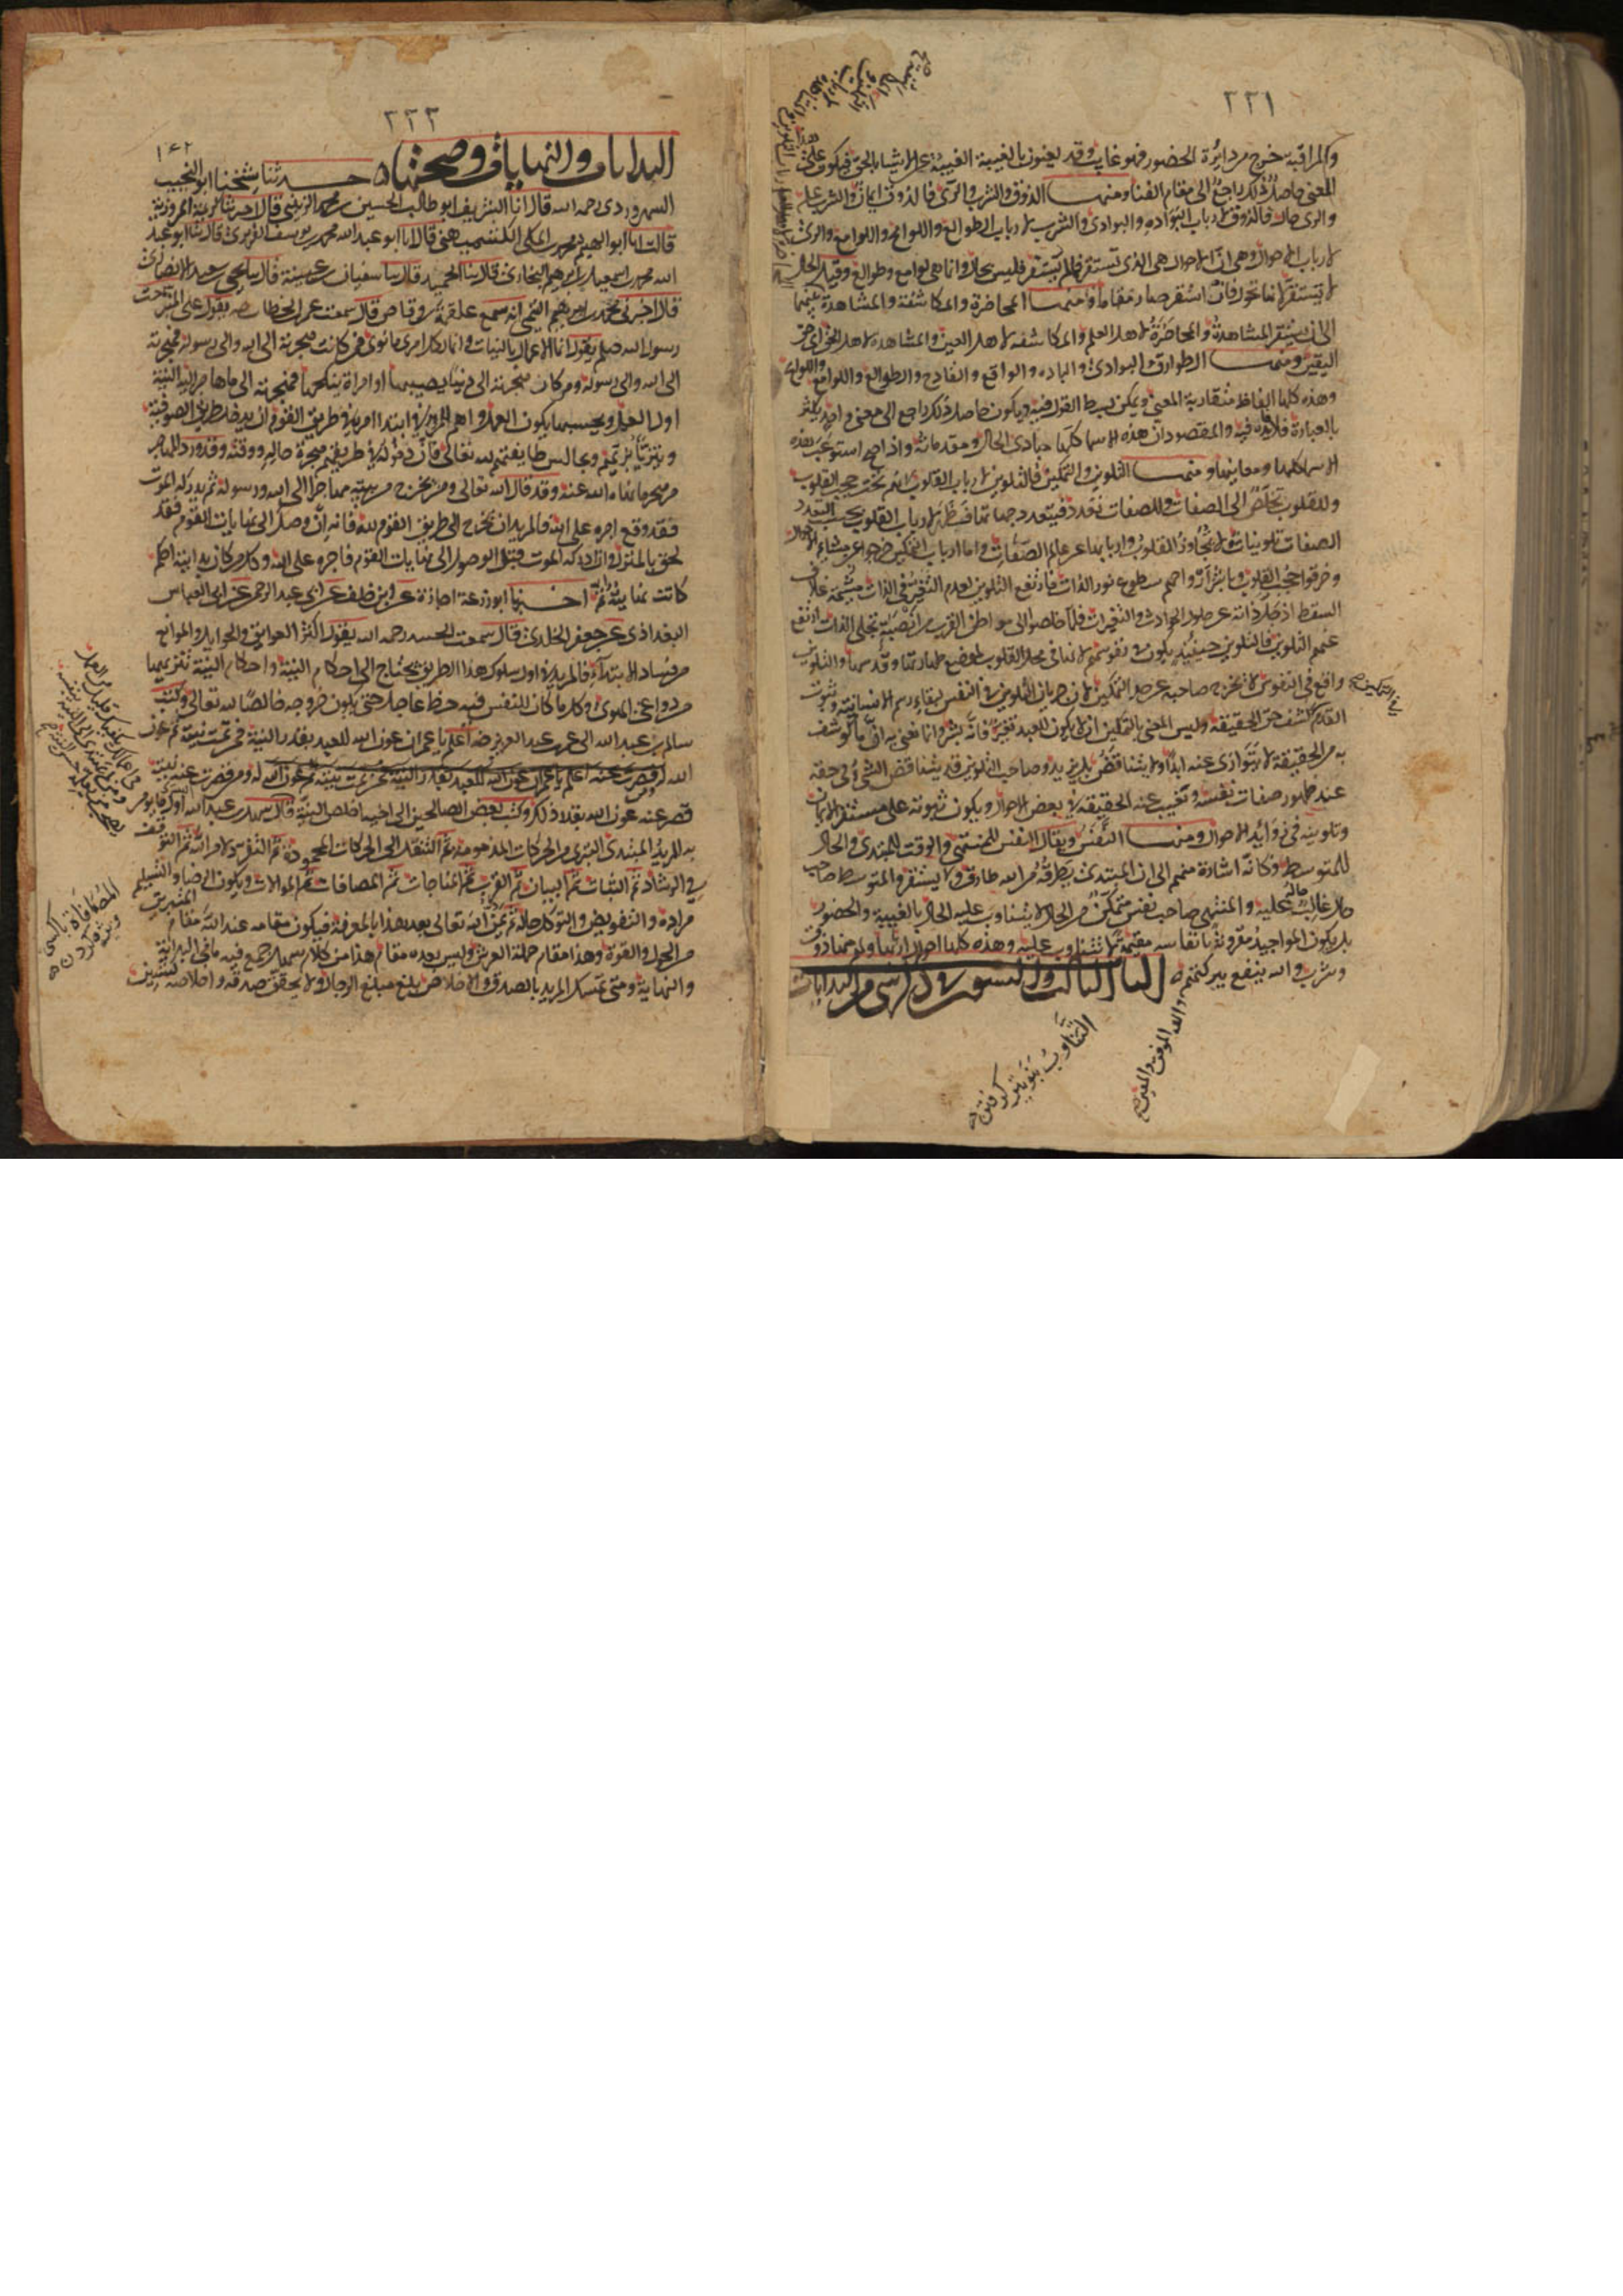 ٢٢١
والمراقبة خرج من دايرة الحضور فهو غايب وقد يعنون بالغيبة الغيبة عن الاشيا بالحق فيكون على هذا
المعنى حاصل ذلك راجع الى مقام الفنا ومنها الذوق والشرب والري فالذوق ايمان والشرب علم
والري حال فالذوق لارباب البواده والبوادي والشرب لارباب الطوالع واللوائح واللوامع والري
لارباب الاحوال وهي ان الاحوال هي الذي تستقر فالم يستقر فليس بحال وانما هي لوامع وطوالع وقيل الحال
لا يستقر لانها تحول فان استقر صار مقاما ومنها المحاضرة والمكاشفة والمشاهدة
الى ان يستقر المشاهدة والمحاضرة لاهل العلم والمكاشفة لاهل العين والمشاهدة لاهل الحق اي حق
اليقين ومنها الطوارق والبوادي والباده والواقع والقادح والطوالع واللوامع واللوائح
وهذه كلها الفاظ متقاربة المعنى ويمكن بسط القول فيه ويكون حاصل ذلك راجع الى معنى واحد يكثر
بالعبارة فلا فائدة فيه والمقصود ان هذه الاسما كلها مبادي الحال ومقدماته واذا صح الحال استوعب هذه
الاسما كلها ومعانيها ومنها التلوين والتمكين فالتلوين لارباب القلوب لانهم تحت حجب القلوب
وللقلوب تخلص الى الصفات وللصفات تعدد فيتعدد جهاتها فتظهر لارباب القلوب بحسب تعدد
الصفات تلوينات ولا تجاوز للقلوب واربابها عن عالم الصفات واما ارباب التمكين فخرجوا عن مشايم الاحوال
وخرقوا حجب القلوب وباشر ارواحهم سطوع نور الذات فارتفع التلوين لعدم التغير في الذات
اذ جلت ذاته عن حلول الحوادث والتغيرات فلما خلصوا الى مواطن القرب من انصبة تجلي الذات ارتفع
عنهم التلوين فالتلوين حينئذ يكون في نفوسهم لانها في محل القلوب لموضع طهارتها وقدسها والتلوين
واقع في النفوس لا يخرج صاحبه عن حال التمكين لان جريان التلوين في النفس لبقاء رسم الانسانية وثبوت
القدم كشف حق الحقيقة وليس المعنى بالتمكين ان لا يكون للعبد تغير فانه بشر وانما نعني به ان ما كوشف
به من الحقيقة لا يتوارى عنه ابدا ولا يتناقص بل يزيد وصاحب التلوين قد يتناقص الشيء في حقه
عند ظهور صفات نفسه وتغيب عنه الحقيقة في بعض الاحوال ويكون ثبوته على مستقر الايمان
وتلوينه في زوائد الاحوال ومنها النفس ويقال النفس للمنتهي والوقت للمبتدي والحال
للمتوسط فكانه اشارة منهم الى ان المبتدي يطرقه من الله طارق ولا يستقر والمتوسط صاحب
حال غالب حاله عليه والمنتهي صاحب نفس متمكن من الحال لا يتناوب عليه الحال بالغيبة والحضور
بل يكون المواجيد مقرونة بانفاسه مقيمة لا تتناوب عليه وهذه كلها احوال لاربابها ولهم منها ذوق
وشرب والله ينفع ببركتهم
الباب الثالث والستون في ذكر شي من البدايات
والله الموفق والمعين
٢٢٢
١٤٢
البدايات والنهايات وصحتها حدثنا شيخنا ابو النجيب
السهروردي رحمه الله قال انا الشريف ابو طالب الحسين بن محمد الزينبي قال اخبرتنا كريمة المروزية
قالت انا ابو الهيثم محمد بن المكي الكشميهني قال انا ابو عبد الله محمد بن يوسف الفربري قال ثنا ابو عبد
الله محمد بن اسمعيل بن ابرهيم البخاري قال ثنا الحميدي قال ثنا سفيان بن عيينة قال ثنا يحيى بن سعيد الانصاري
قال اخبرني محمد بن ابرهيم التيمي انه سمع علقمة بن وقاص قال سمعت عمر بن الخطاب رضه يقول على المنبر سمعت
رسول الله صلعم يقول انما الاعمال بالنيات وانما لكل امرئ ما نوى فمن كانت هجرته الى الله والى رسوله فهجرته
الى الله والى رسوله ومن كان هجرته الى دنيا يصيبها او امراة ينكحها فهجرته الى ما هاجر اليه النية
اول العمل وبحسبها يكون العمل واهم ما للمريد في ابتدا امره في طريق القوم ان يدخل طريق الصوفية
ويتزيا بزيهم ويجالس طايفتهم لله تعالى فان دخوله في طريقهم هجرة حاله ووقته وقد ورد المهاجر
من هجر ما نهاه الله عنه وقد قال الله تعالى ومن يخرج من بيته مهاجرا الى الله ورسوله ثم يدركه الموت
فقد وقع اجره على الله فالمريد ان يخرج الى طريق القوم لله فانه ان وصل الى نهايات القوم فقد
لحق بالمنزل وان ادركه الموت قبل الوصول الى نهايات القوم فاجره على الله وكل من كان بدايته احكم
كانت نهايته اتم اخبرنا ابو زرعة اجازة عن ابن خلف عن ابي عبد الرحمن عن ابي العباس
البغدادي عن جعفر الخلدي قال سمعت الجنيد رحمه الله يقول اكثر العوايق والحوايل والموانع
من فساد الابتداء فالمريد في اول سلوك هذا الطريق يحتاج الى احكام النية واحكام النية تنزيهها
من دواعي الهوى وكل ما كان للنفس فيه حظ عاجل حتى يكون خروجه خالصا لله تعالى وكتب
سالم بن عبد الله الى عمر بن عبد العزيز رضه اعلم يا عمر ان عون الله للعبد بقدر النية فمن تمت نيته تم عون
الله له ومن قصرت عنه نيته
قصر عنه عون الله بقدر ذلك وكتب بعض الصالحين الى اخيه اخلص النية قال سهل بن عبد الله اول ما يؤمر
به المريد المبتدي التبري من الحركات المذمومة ثم التنقل الى الحركات المحمودة ثم التفرد لامر الله ثم التوقف
في الرشاد ثم الثبات ثم البيان ثم القرب ثم المناجات ثم المصافات ثم الموالات ويكون الرضا والتسليم
مراده والتفويض والتوكل حاله ثم يمن الله تعالى بعد هذا بالمعرفة فيكون مقامه عند الله مقام المتبرين
من الحول والقوة وهذا مقام حملة العرش وليس بعده مقام هذا من كلام سهل جمع فيه ما في البداية
والنهاية ومتى تمسك المريد بالصدق والاخلاص بلغ مبلغ الرجال ولا يحقق صدقه واخلاصه شيئين